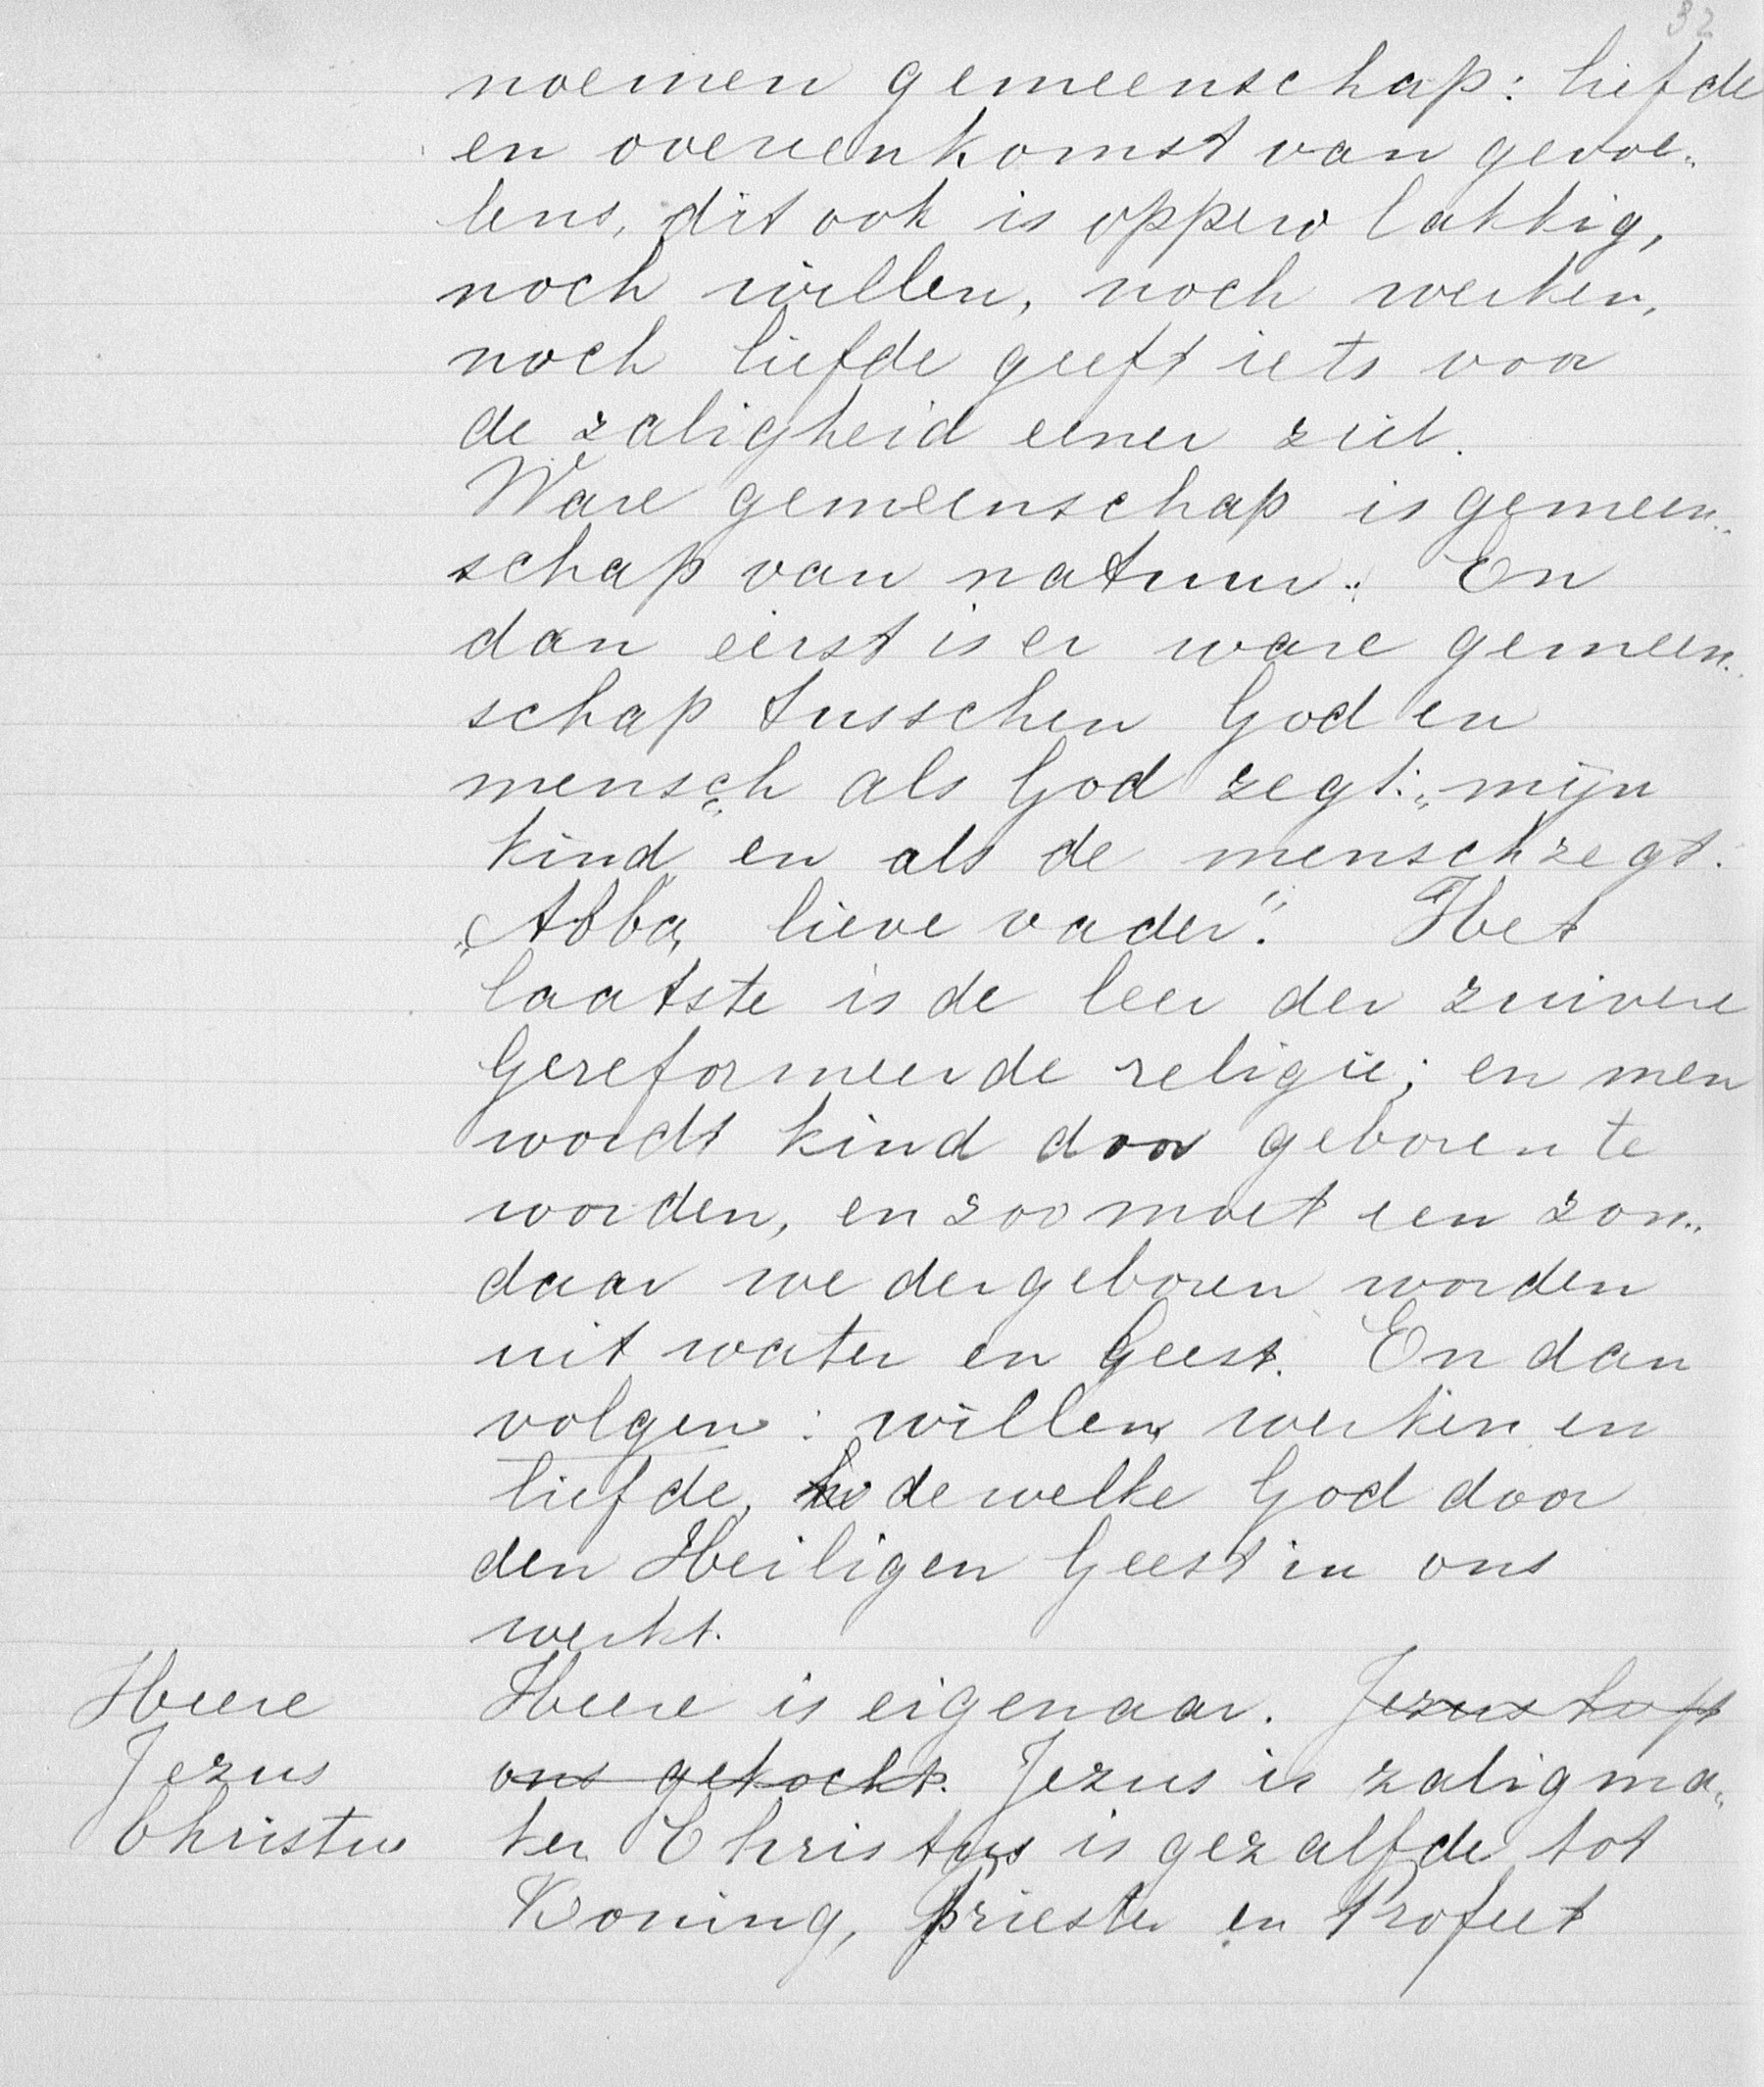 32
noemen gemeenschap: liefde
en overeenkomst van gevoe-
lens, dit ook is oppervlakkig,
noch willen, noch werken,
noch liefde geeft iets voor
de zaligheid eener ziel.
Ware gemeenschap is gemeen-
schap van natuur. En
dan eerst is er ware gemeen-
schap tusschen God en
mensch als God zegt: „mijn
kind„ en als de mensch zegt.
„Abba, lieve vader". Het
laatste is de leer der zuivere
Gereformeerde religie; en men
wordt kind door geboren te
worden, en zoo moet een zon-
daar wedergeboren worden
uit water en Geest. En dan
volgen: willen, werken en
liefde, dewelke God door
den Heiligen Geest in ons
werkt.
Heere Heere is eigenaar. Jezus heeft
Jezus ons gekocht. Jezus is zaligma-
Christus ker Christus is gezalfde tot
Koning, Priester en Profeet